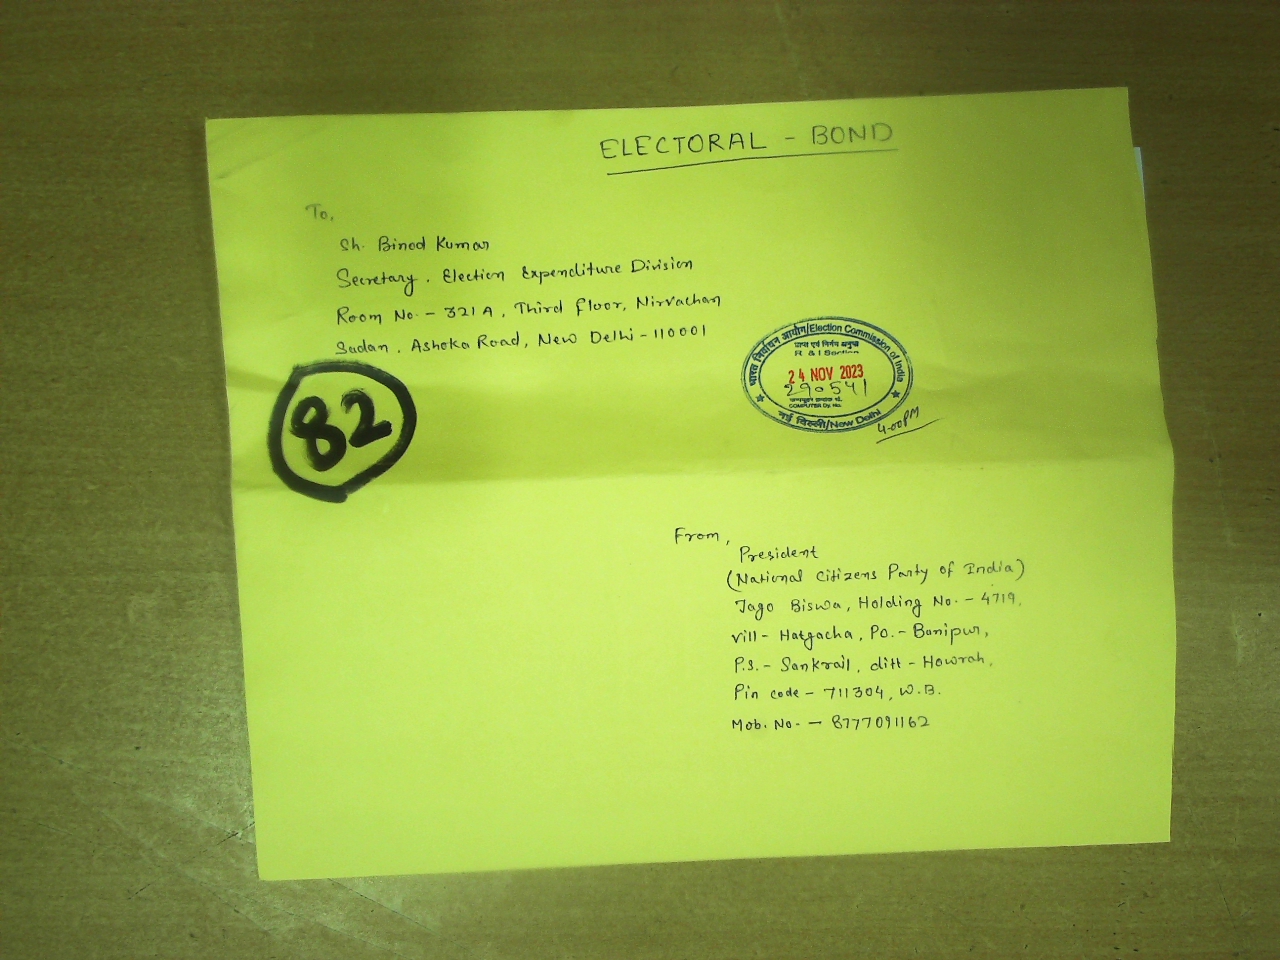 ELECTORAL - BOND
To,
Sh. Binod Kumar
Secretary, Election Expenditure Division
Room No. - 321A, Third floor, Nirvachan
Sadan, Ashoka Road, New Delhi - 110001
82
भारत निर्वाचन आयोग/Election Commission of India
प्राप्त एवं निर्गम अनुभाग
R & I Section
24 NOV 2023
290541
COMPUTER Dy. No.
नई दिल्ली/New Delhi
4.00PM
From,
President
(National Citizens Party of India)
Jago Biswa, Holding No. - 4719,
vill - Hatgacha, Po. - Banipur,
P.S. - Sankrail, ditt - Howrah,
Pin code - 711304, W.B.
Mob. No. - 8777091162